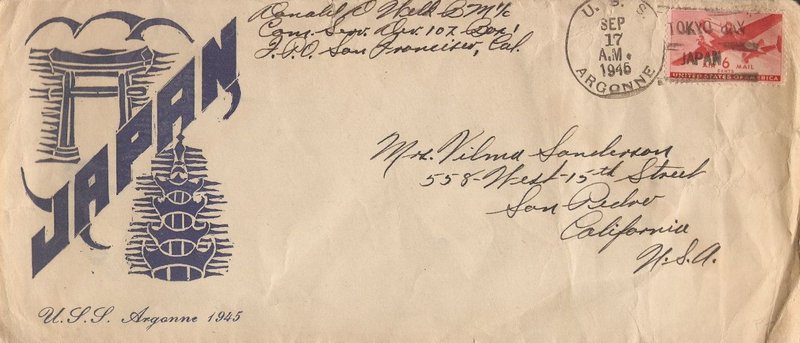 Donald D Webb BM1/c
Com. Serv. Div. 102 Box 1
F.P.O. San Francisco, Cal.
U. S. S.
SEP
17
A.M.
1945
ARGONNE
TOKYO BAY
JAPAN
6
MAIL
CENTS
UNITED STATES OF AMERICA
JAPAN
Mrs. Vilma Sanderson
558-West-15th Street
San Pedro
California
U.S.A.
U.S.S. Argonne 1945